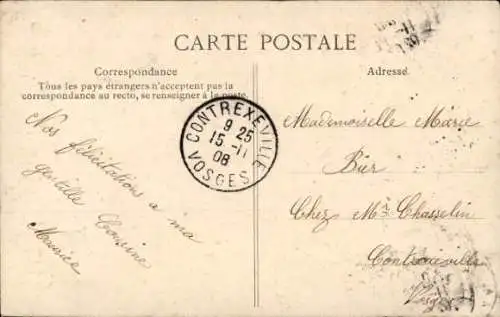 CARTE POSTALE
Correspondance
Tous les pays étrangers n'acceptent pas la
correspondance au recto, se renseigner à la poste.
Nos félicitations a ma
gentille Cousine
Maurice
CONTREXEVILLE
9 25
15 - 11
08
VOSGES
Adresse
Mademoiselle Marie
Bier
Chez Mr Chasselin
Contrexeville
Vosges